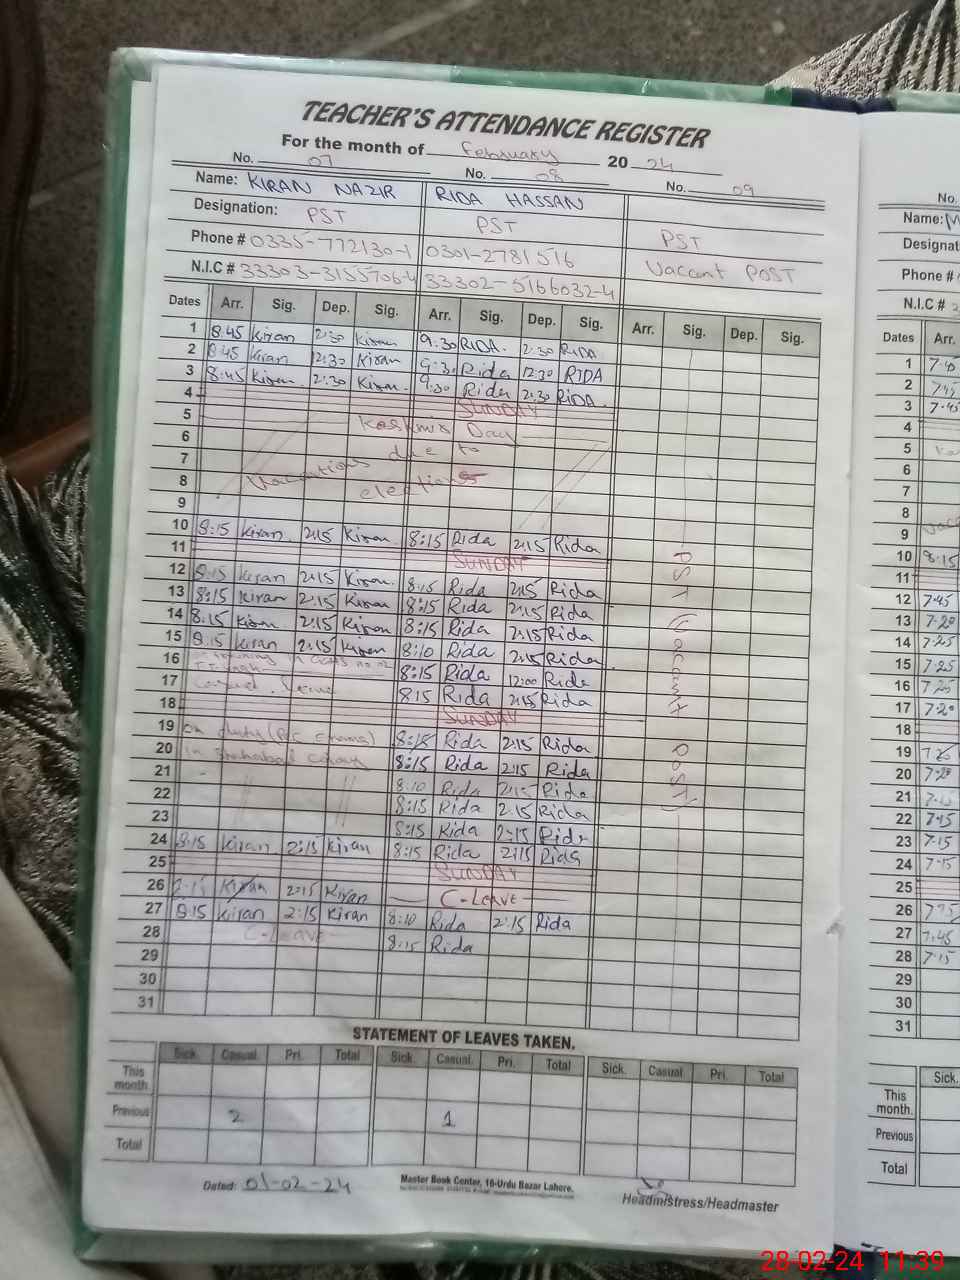 TEACHER'S ATTENDANCE REGISTER
For the month of February 2024
No. 07 No. 08 No. 09
Name: KIRAN NAZIR RIDA HASSAN
Designation: PST PST PST
Phone # 0335-772130-1 0301-2781516 Vaccant POST
N.I.C # 33303-3155706-4 33302-5166032-4
Dates Arr. Sig. Dep. Sig. Arr. Sig. Dep. Sig. Arr. Sig. Dep. Sig.
1 8:45 Kiran 2:30 Kiran 9:30 RIDA. 2:30 RIDA
2 8:45 Kiran 12:30 Kiran 9:30 Rida 12:30 RIDA
3 8:45 Kiran 2:30 Kiran 9:30 Rida 2:30 RIDA
4 SUNDAY
5 Kashmir Day
6 due to
7 Vacations
8 elections
9
10 8:15 Kiran 2:15 Kiran 8:15 Rida 2:15 Rida
11 SUNDAY
12 8:15 Kiran 2:15 Kiran 8:15 Rida 2:15 Rida
13 8:15 Kiran 2:15 Kiran 8:15 Rida 2:15 Rida
14 8:15 Kiran 2:15 Kiran 8:15 Rida 2:15 Rida
15 8:15 Kiran 2:15 Kiran 8:10 Rida 2:15 Rida
16 8:15 Rida 12:00 Rida
17 8:15 Rida 2:15 Rida
18 SUNDAY
19 on duty 8:15 Rida 2:15 Rida
20 in 8:15 Rida 2:15 Rida
21 8:10 Rida 2:15 Rida
22 8:15 Rida 2:15 Rida
23 8:15 Rida 2:15 Rida
24 8:15 Kiran 2:15 Kiran 8:15 Rida 2:15 Rida
25 SUNDAY
26 Kiran 2:15 Kiran C-LEAVE
27 8:15 Kiran 2:15 Kiran 8:10 Rida 2:15 Rida
28 C-LEAVE 8:15 Rida
29
30
31
PST Vaccant POST
STATEMENT OF LEAVES TAKEN.
Sick. Casual. Pri. Total Sick. Casual. Pri. Total Sick. Casual Pri. Total
This month.
Previous 2 1
Total
Dated: 01-02-24
Master Book Center, 16-Urdu Bazar Lahore.
Headmistress/Headmaster
No.
Name: M
Designat
Phone #
N.I.C #
Dates Arr.
1 7:45
2 7:45
3 7:45
4
5
6
7
8
9
10 8:15
11
12 7:45
13 7:20
14 7:25
15 7:25
16 7:25
17 7:20
18
19 7:20
20 7:20
21 7:15
22 7:15
23 7:15
24 7:15
25
26
27 7:45
28 7:15
29
30
31
Sick.
This month.
Previous
Total
28-02-24 11:39